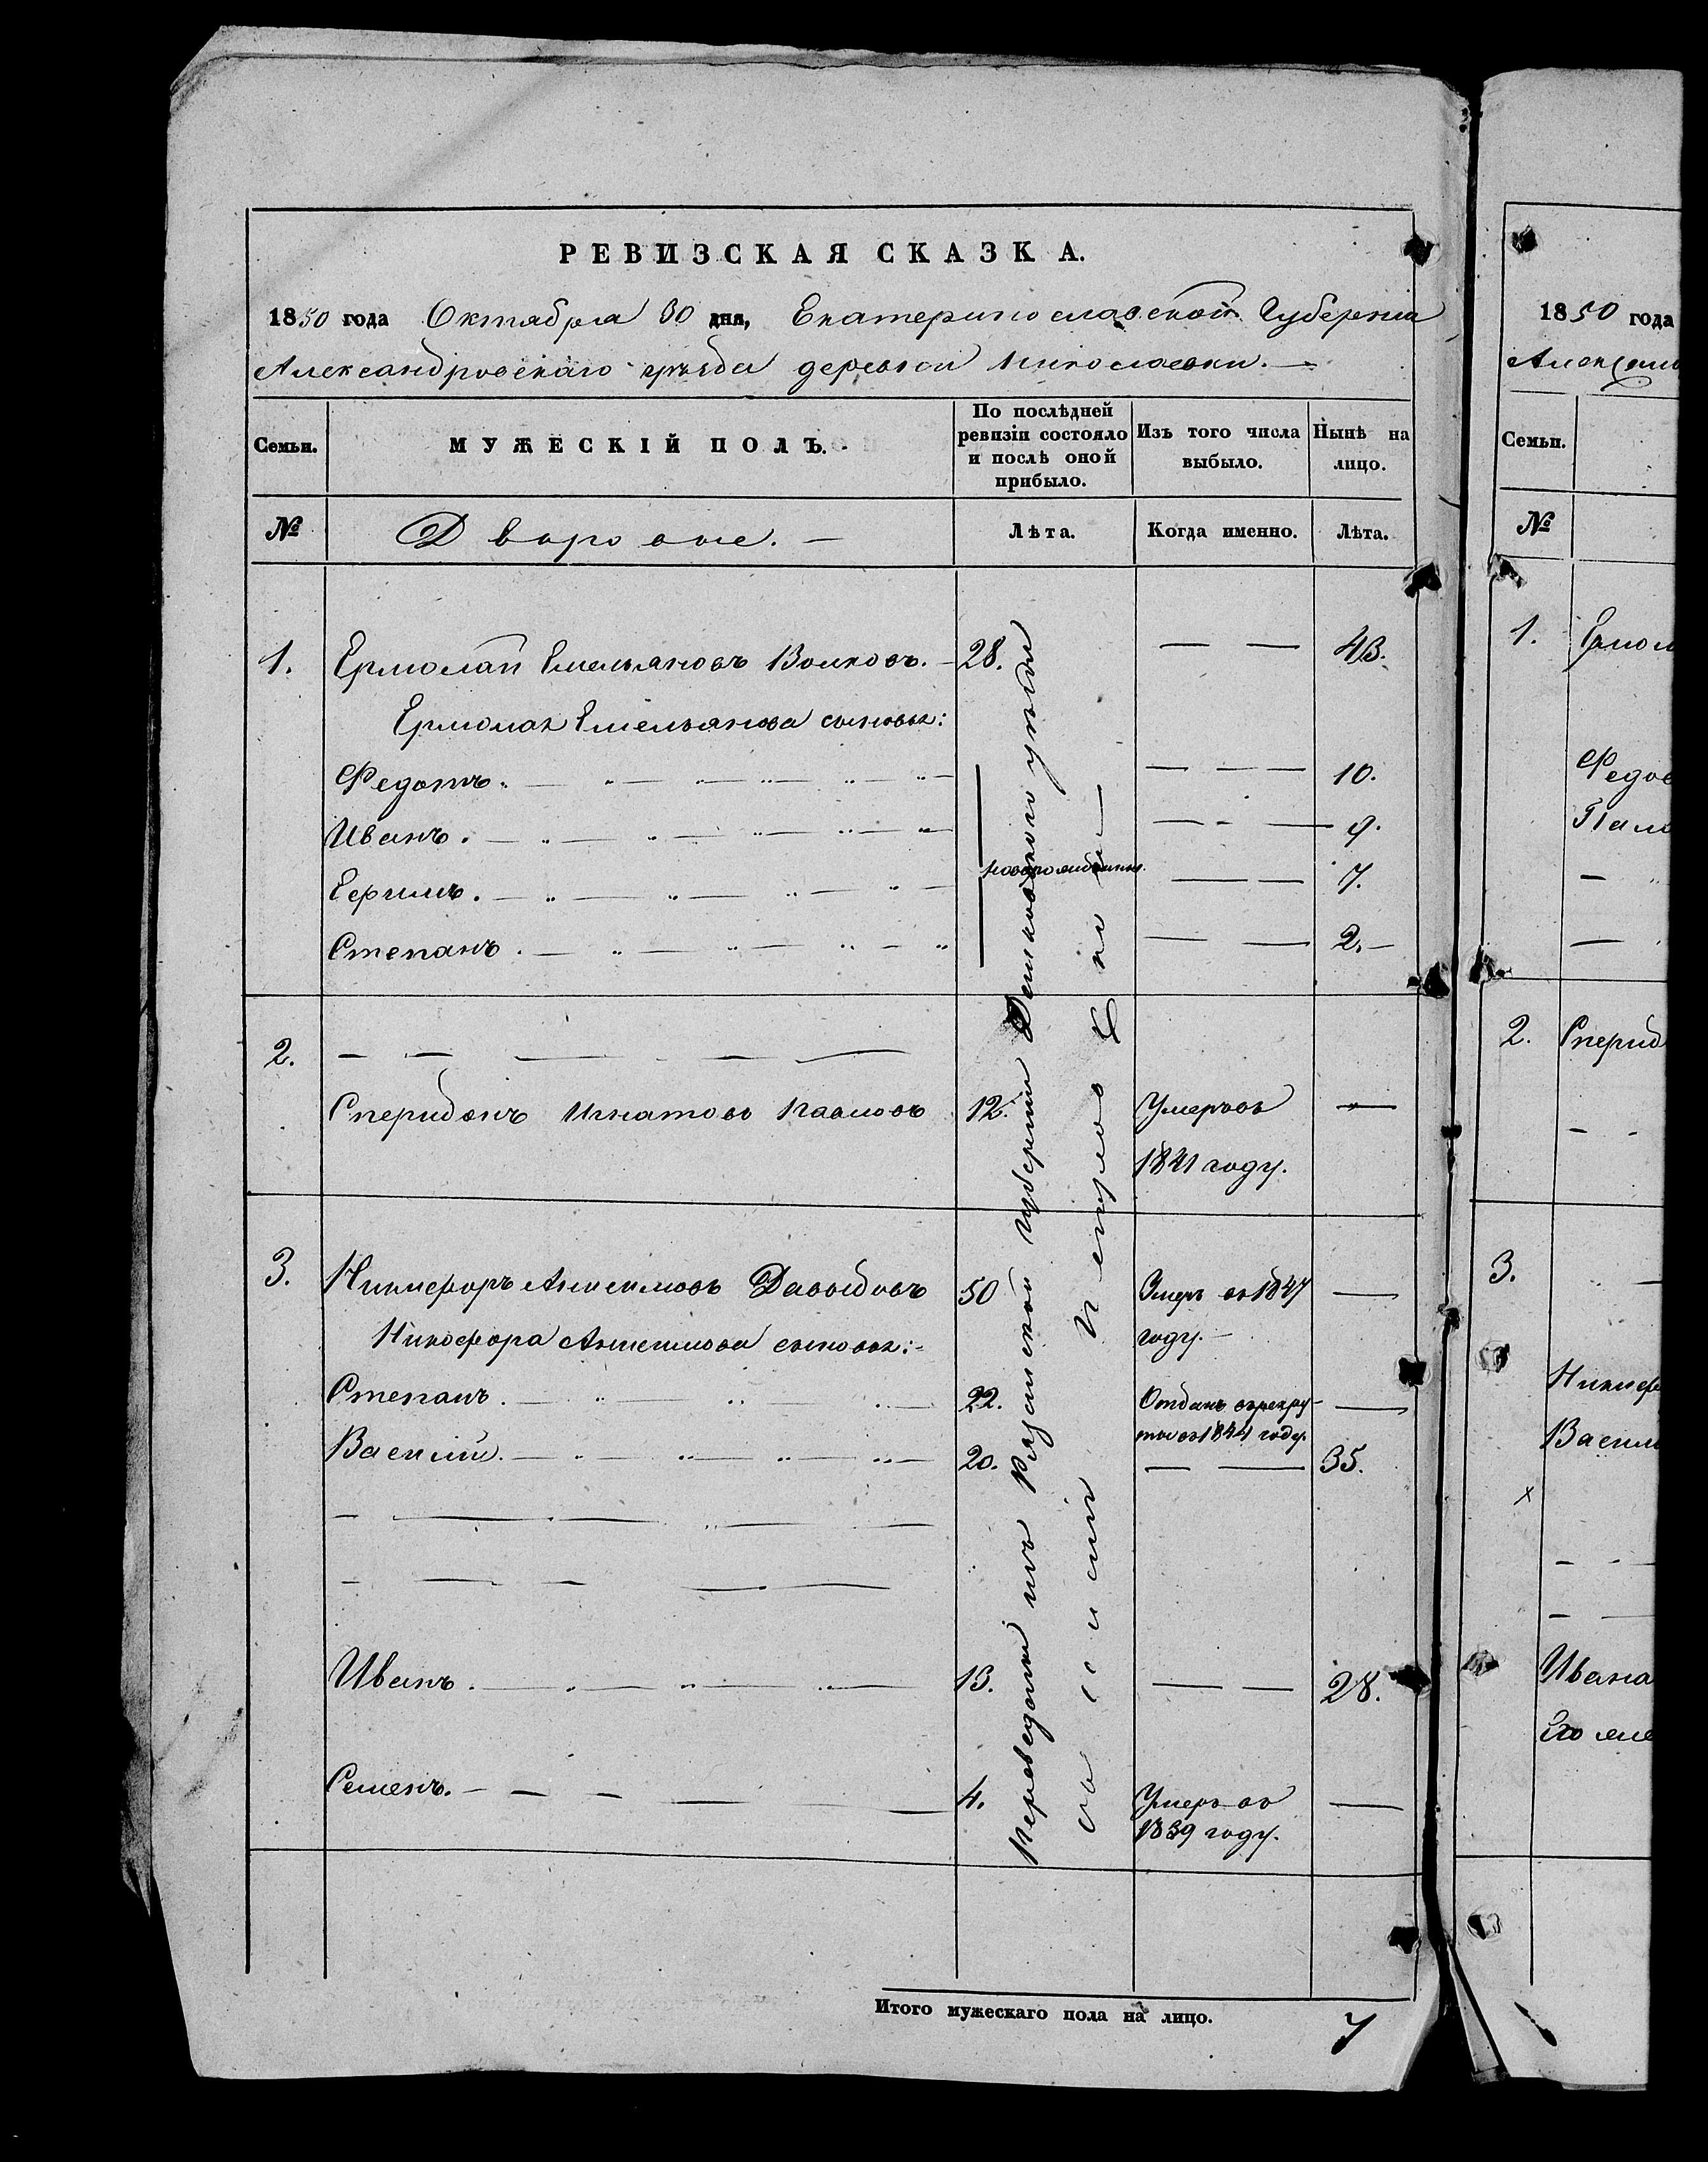 РЕВИЗСКАЯ СКАЗКА.
1850 года Октября 30 дня, Екатеринославской Губерніи
Александровскаго уѣзда деревни
Семьи. МУЖЕСКІЙ ПОЛЪ. По послѣдней ревизіи состояло и послѣ оной прибыло. Изъ того числа выбыло. Нынѣ на лицо.
№ Дворовые. Лѣта. Когда именно. Лѣта.
1. Ермолай Емельяновъ Волковъ. 28. 43.
Ермолая Емельянова сыновья:
Федотъ. 10.
Иванъ. 9.
новорожденные.
Ефимъ. 7.
Степанъ. 2.
2.
Сперидонъ Игнатовъ Павловъ 12. Умеръ въ
1841 году.
3. Никифоръ Анисимовъ Давыдовъ 50 Умеръ въ 1847
Никифора Анисимова сыновья: году.
Степанъ. 22. Отданъ въ рекру-
ты въ 1844 году.
Василій. 20. 35.
Иванъ. 13. 28.
Семенъ. 4. Умеръ въ
1839 году.
Переведены изъ Рязанской губерніи Данковскаго уѣзда
изъ села
Итого мужескаго пола на лицо. 7
1850 года
Семьи.
№
1.
2. Сперид
3.
Никиф
Васил
х
Ивана
Его же